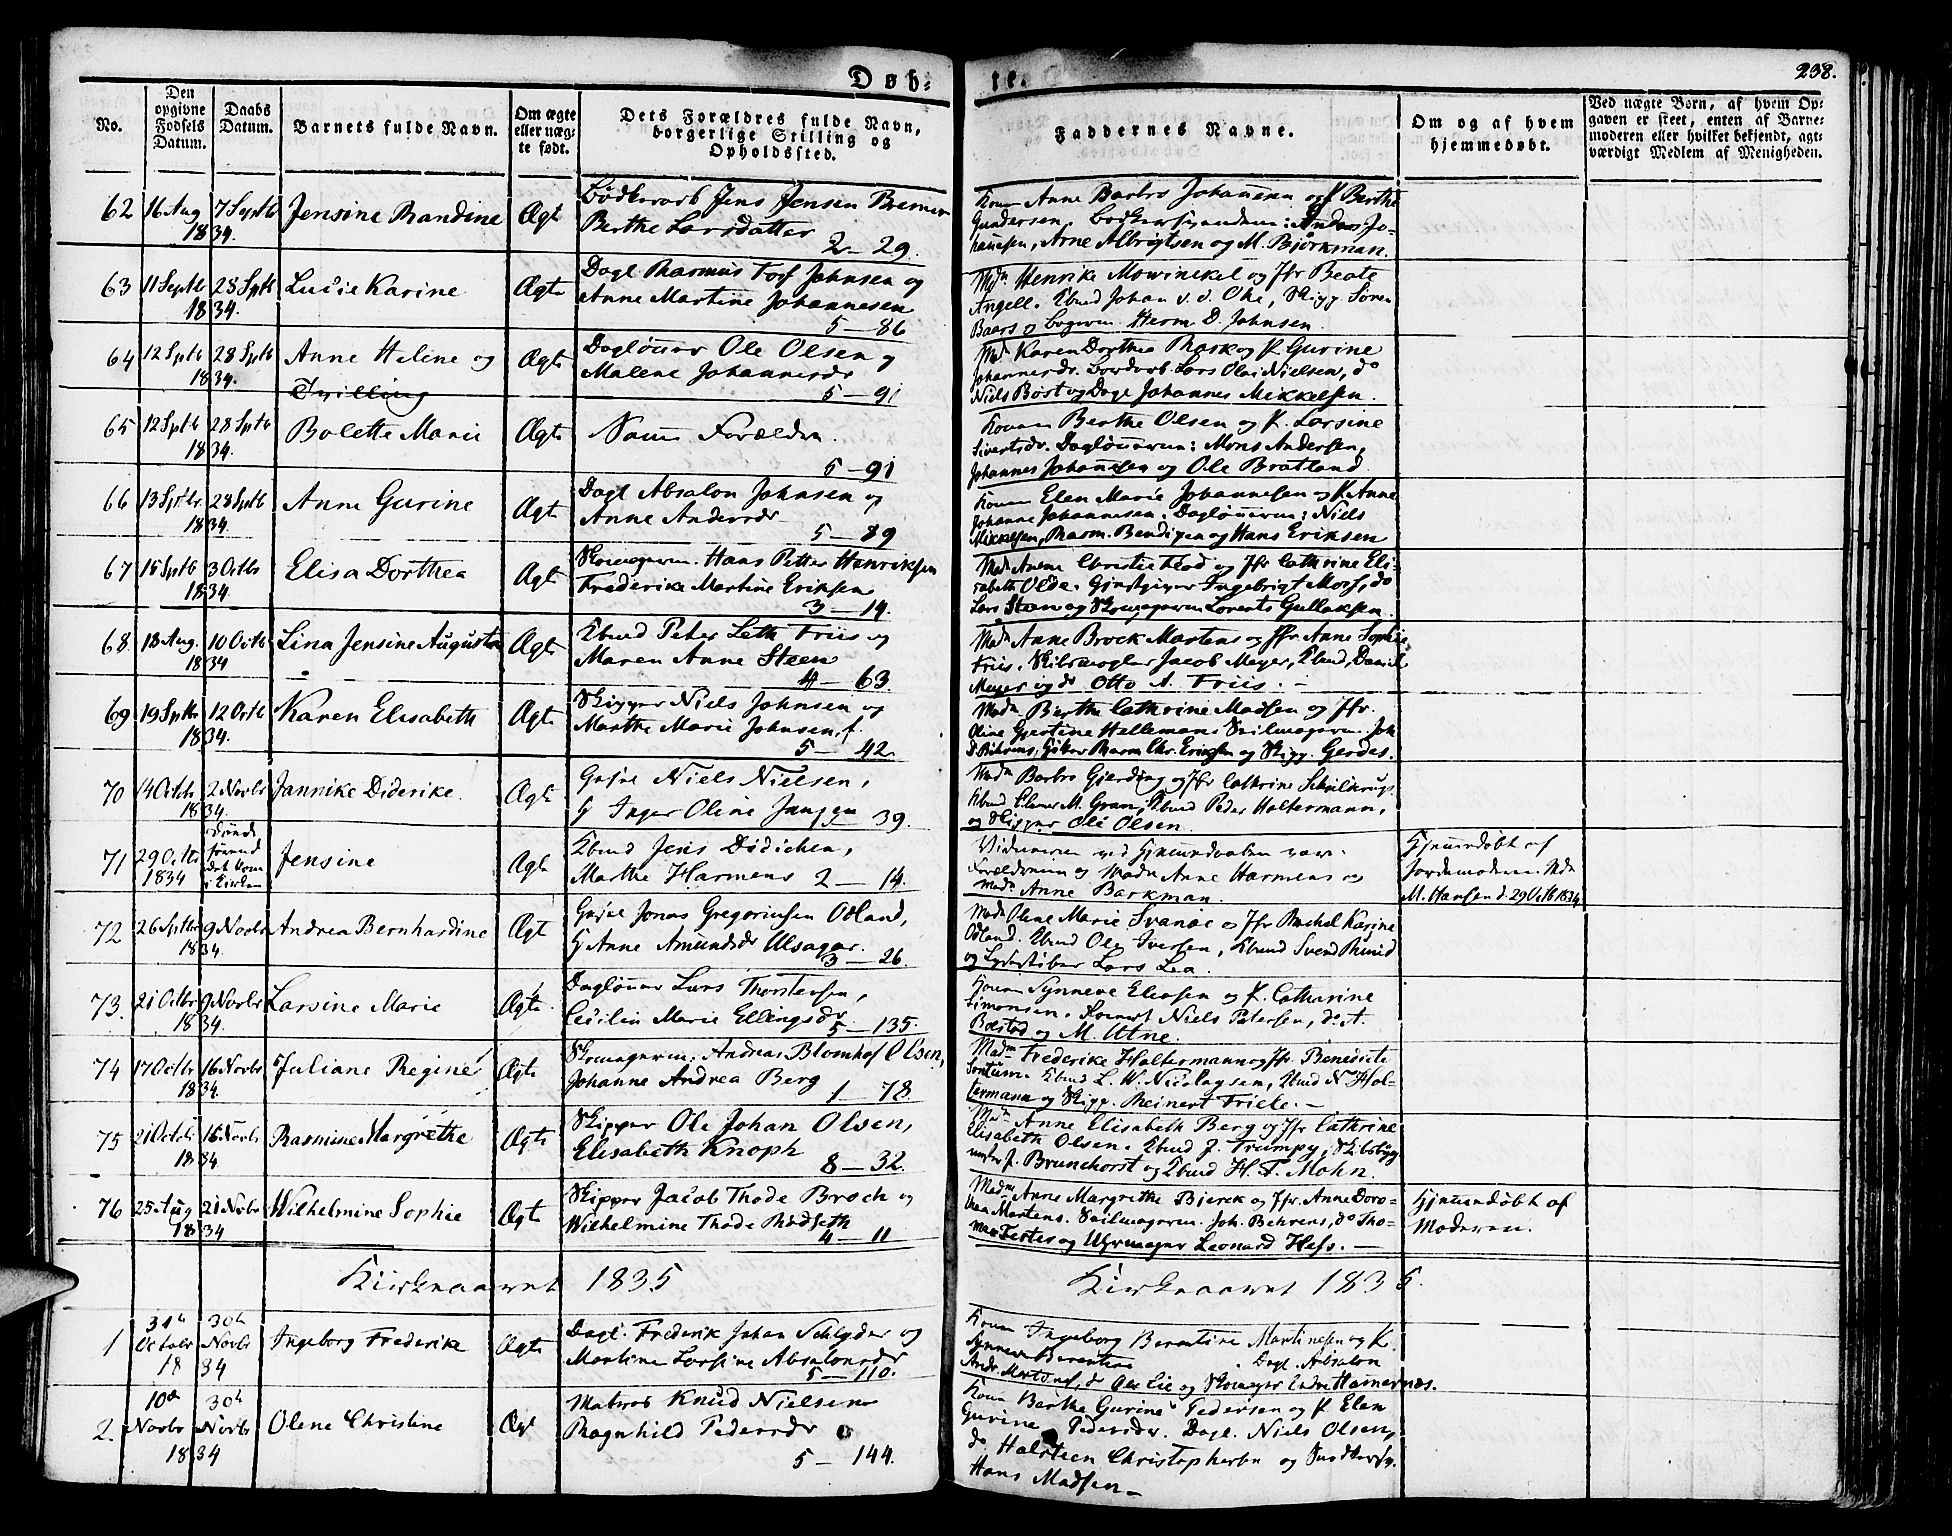 Døb-
te.
238.
No.
Den opgivne Fødsels Datum.
Daabs Datum.
Barnets fulde Navn.
Om ægte eller uægte født.
Dets Forældres fulde Navn, borgerlige Stilling og Opholdssted.
Faddernes Navne.
Om og af hvem hjemmedøbt.
Ved uægte Børn, af hvem Opgaven er skeet, enten af Barnemoderen eller hvilket bekjendt, agtværdigt Medlem af Menigheden.
62 16 Aug 7 Septb 1834. Jensine Randine Ægt
Jens Jensen
Berthe Larsdatter
2 - 29.
Anne Barbro Johannesen og P. Berthe
Gundersen, Anders Jo-
hannesen, Arne Albrigtsen og M. Bjørkman.
63 11 Septb 28 Sptb 1834. Lucie Karine Ægte
Dagl Rasmus Tolf Johnsen og
Anne Martine Johannesen
5 - 86
Mdm Henrike Mowinckel og Jfr Beate
Angell. Kbmd Johan v. d. Ohe, Skipp Søren
Baars og Herm D. Johnsen.
64 12 Sptb 28 Sptb 1834. Anne Helene og Ægte
Tvilling
Dagløner Ole Olsen og
Malene Johannesdr
5 - 91
Mad Karen Dorthea Rask og P. Gurine
Johannesdr. Lars Olai Nielsen, do
Niels Børst og Dagl Johannes Mikkelsen.
65 12 Sptb 28 Sptb 1834. Bolette Marie Ægte
Samme Forældre.
5 - 91
Konen Berthe Olsen og P. Larsine
Sivertsdr. Dagløn­nerne: Mons Andersen,
Johannes Johannesen og Ole Bratland.
66 13 Sptbr 28 Sptb 1834. Anne Gurine Ægte
Dagl Absalon Johnsen og
Anne Andersdr
5 - 89
Konen Elen Marie Johannesen og P. Anne
Johanne Johannesen. Dagløn­nerne: Niels
Mikkelsen, Rasm. Bendixen og Hans Eriksen
67 15 Sptb 3 Octbr 1834. Elisa Dorthea Ægte
Skomagersv. Hans Petter Henriksen
Frederike Martine Eriksen
3 - 14.
Mad Anne Christie Flod og Jfr Cathrine Eli-
sabeth Olde. Gjestgiver Ingebrigt Mors, do
Lars Steen og Skomagersv. Lorents Gullaksen.
68 13 Aug. 10 Octb 1834 Lina Jensine Augusta Ægte
Kbmd Peter Leth Friis og
Maren Anne Steen
4 - 63.
Mdm Anne Brock Martens og Jfr Anne Sophie
Friis. Skibsmægler Jacob Meyer, Kbmd, Daniel
Meyer og do Otto A. Friis. -
69 19 Sptbr 12 Octb 1834. Karen Elisabeth Ægte
Skipper Niels Johnsen og
Marthe Marie Johnsen, f.
5 - 42.
Mdm Berthe Cathrine Madsen og Jfr.
Oline Gjertine Hellemann. Seilmagersv. Joh
D. Behrens, Rasm Chr. Eriksen og Skipp. Gerdes.
70 14 Octbr 2 Novbr 1834. Jannike Diderike. Ægte
Niels Nielsen,
Inger Oline
39.
Mdm Barbro Gjerding og Jfr Cathrine
Kbmd Elmer M. Gran, Kbmd Peder Holtermann,
og Skipper Ole Olsen.
71 29 Octbr 1834 Jensine Ægt
Kbmd Jens Didichen,
Marthe Harmens 2 - 14.
Vidnerne ved Hjemmedaaben vare:
Forældrene og Mdm Anne Harmens og
Mdm Anne Barkman.
Hjemmedøbt af
Jordemoderen Mdm
M. Hansen d. 29 Octb 1834
72 26 Sptbr 9 Novbr 1834. Andrea Bernhardine Ægt
Jonas Gregoriusen Odland,
Anne Amundsdr Ulsager.
3 - 26.
Mdm Olene Marie Svanøe og Jfr Rachel Karine
Odland. Kbmd Ole Iversen, Kbmd Svend
og Lars Lea.
73. 21 Octbr 9 Novbr 1834. Larsine Marie Ægte
Dagløner Lars Thorstensen,
Cecilia Marie Ellingsdr
5 - 135.
Konen Synneve Eliasen og P. Catharine
Simonsen. Niels Petersen, do A.
Bolstad og M. Utne.
74 17 Octbr 16 Novbr 1834. Juliane Regine Ægte
Skomagersv. Andreas Blomhof Olsen,
Johanne Andrea Berg
1 - 78.
Madm Frederike Holtermann og Jfr. Benedicte
Sontum. Kbmd L. W. Nicolaysen, Kbmd N. Hol-
termann og Skipp. Reinert Friele. -
75 21 Octbr 16 Novbr 1834. Rasmine Margrethe Ægte
Skipper Ole Johan Olsen,
Elisabeth Knoph
8 - 32.
Mdm Anne Elisabeth Berg og Jfr Cathrine
Elisabeth Olsen. Kbmd J. Trumpy, Skibsbyg-
mester J. Brunchorst og Kbmd H. F. Mohn.
76 25 Aug 21 Novbr 1834 Wilhelmine Sophie Ægte
Skipper Jacob Thode Broch og
Wilhelmine Thode Rodseth
4 - 11
Madm Anne Margrethe Bjerck og Jfr. Anne Doro-
thea Martens. Seilmagersv. Joh. Behrens, do Tho-
mas Fertes og Uhrmager Leonard Hess. -
Hjemmedøbt af
Moderen.
Kirkeaaret 1835
Kirkeaaret 1835.
1 31te October 30te Novbr 1834 Ingeborg Frederike Ægte
Dagl. Frederik Johan Schlyder og
Martine Larsine Absalonsdr
5 - 110.
Konen Ingeborg Berentine Martinesen og P.
Synneve Berentine. Dagl. Absalon
Andr. do Ole Lie og Skomager Endre Hamernæs.
2. 10de Novbr 30te Novbr 1834 Olene Christine Ægt
Matros Knud Nielsen
Ragnhild Pedersdr
5 - 144.
Konen Berthe Gurine Pedersen og P. Elen
Gurine Pedersdr. Dagl. Niels Olsen,
do Halsteen Christophersen og
Hans Madsen -